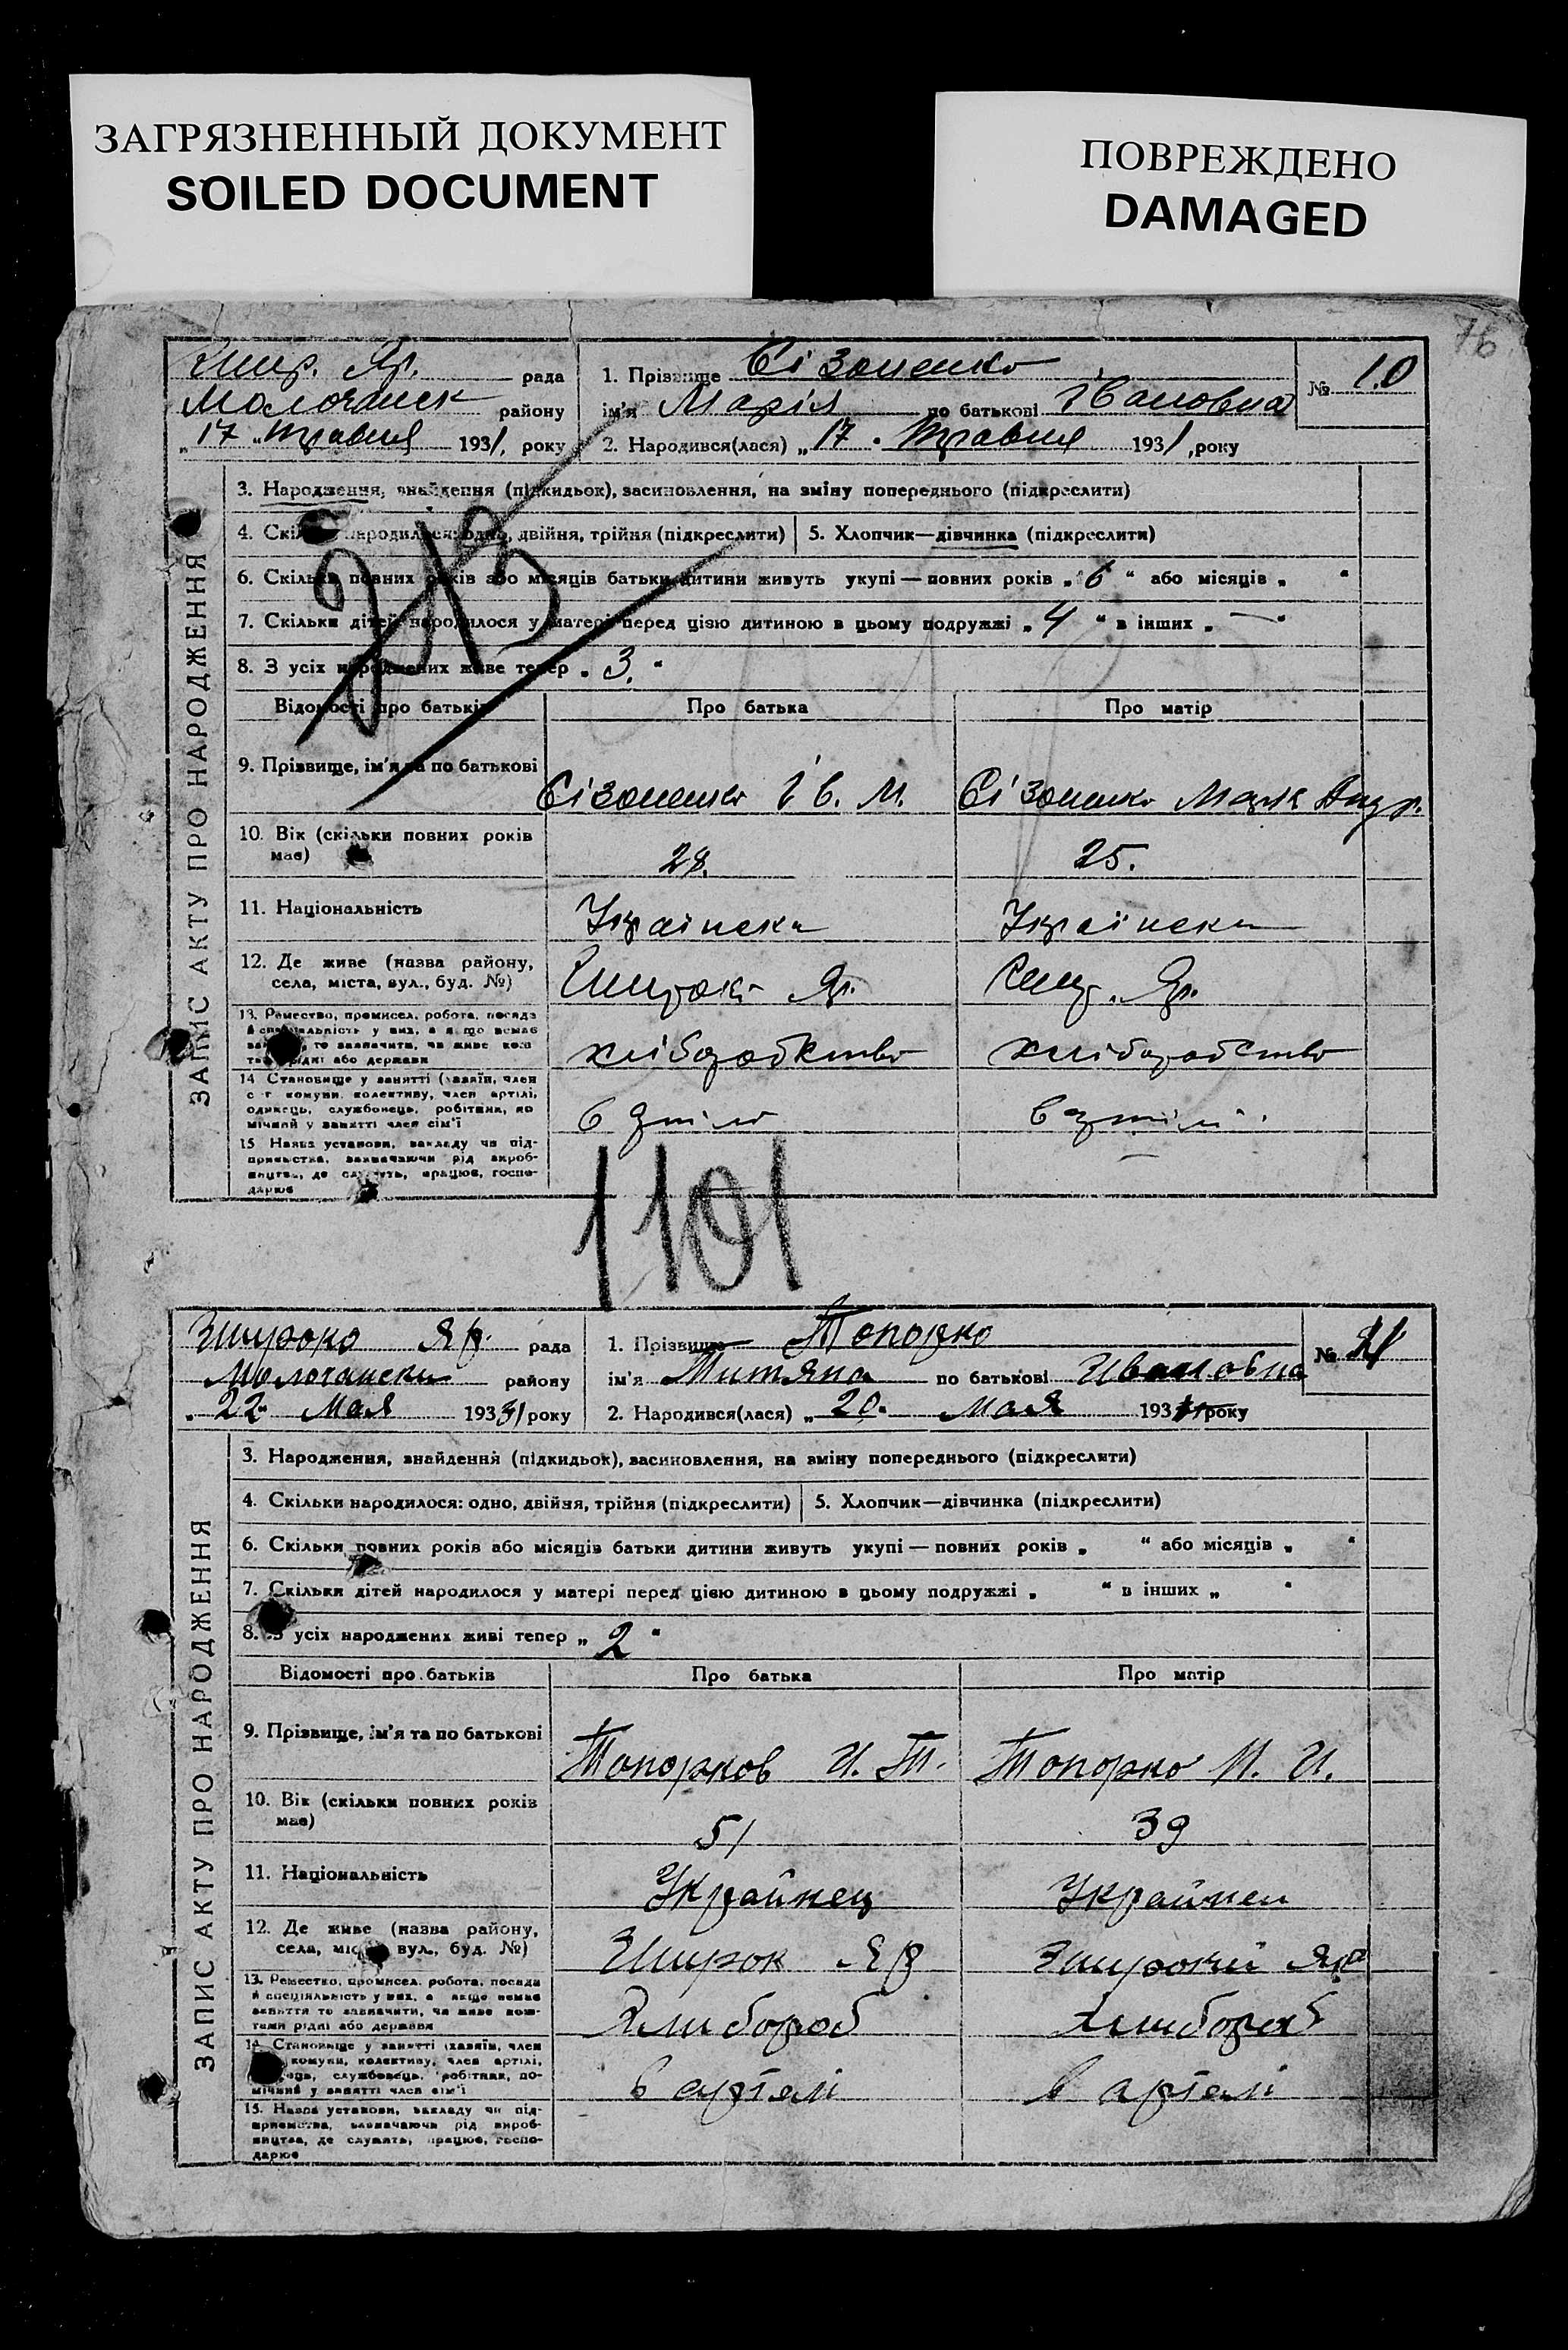 ЗАГРЯЗНЕННЫЙ ДОКУМЕНТ
SOILED DOCUMENT
ПОВРЕЖДЕНО
DAMAGED
76
Шир. Яр. рада
Молочанск району
„17„ травня 1931, року
1. Прізвище Сізоненко
ім'я Марія по батькові Івановна
2. Народився(лася) „17. травня 1931, року
№ 10
ЗАПИС АКТУ ПРО НАРОДЖЕННЯ
3. Народження, знайдення (підкидьок), засиновлення, на зміну попереднього (підкреслити)
4. народилося: одно, двійня, трійня (підкреслити) 5. Хлопчик—дівчинка (підкреслити)
6. Скільки повних років або місяців батьки дитини живуть укупі — повних років „6“ або місяців „ “
7. Скільки дітей народилося у матері перед цією дитиною в цьому подружжі „4“ в інших „—“
8. З усіх народжених живе тепер „3.“
Відомості про батьків Про батька Про матір
9. Прізвище, ім'я та по батькові Сізоненко Ів. М. Сізоненко Андр.
10. Вік (скільки повних років
має) 28. 25.
11. Національність Українська Українська
12. Де живе (назва району,
села, міста, вул., буд. №) Широк. Яр. Шир. Яр.
13. Ремество, промисел, робота, посада
й спеціальність у них, а якщо немає
то зазначити, чи живе
рідні або держави хліборобство хліборобство
14 Становище у занятті (хазяїн, член
с г комуни, колективу, член артілі,
одинець, службовець, робітник, по
мічний у занятті член сім'ї
15 Назва установи, закладу чи під-
приємства, зазначаючи рід вироб-
ництва, де служить, працює, госпо-
дарює
1101
Широко Яр. рада
Молочански району
„22„ Мая 19331 року
1. Прізвище Топорко
ім'я Титяна по батькові Ивановна
2. Народився(лася) „20. мая 1931 року
№ 11
ЗАПИС АКТУ ПРО НАРОДЖЕННЯ
3. Народження, знайдення (підкидьок), засиновлення, на зміну попереднього (підкреслити)
4. Скільки народилося: одно, двійня, трійня (підкреслити) 5. Хлопчик—дівчинка (підкреслити)
6. Скільки повних років або місяців батьки дитини живуть укупі — повних років „ “ або місяців „ “
7. Скільки дітей народилося у матері перед цією дитиною в цьому подружжі „ “ в інших „ “
8. З усіх народжених живі тепер „2“
Відомості про батьків Про батька Про матір
9. Прізвище, ім'я та по батькові Топорков И. Т. Топорко М. И.
10. Вік (скільки повних років
має) 51 39
11. Національність Украйнец Украйнец
12. Де живе (назва району,
села, вул., буд. №) Широк Яр Широкий Яр
13. Ремество, промисел, робота, посада
й спеціяльність у них, а якщо немає
заняття то зазначити, чи живе кош-
тами рідні або держави Хлибороб Хлибороб
14 Становище у занятті (хазяїн, член
комуни, колективу, член артілі,
службовець, робітник, по-
мічний у занятті член сім'ї в артели в артели
15. Назва установи, закладу чи під-
приємства, зазначаючи рід вироб-
ництва, де служить, працює, госпо-
дарює